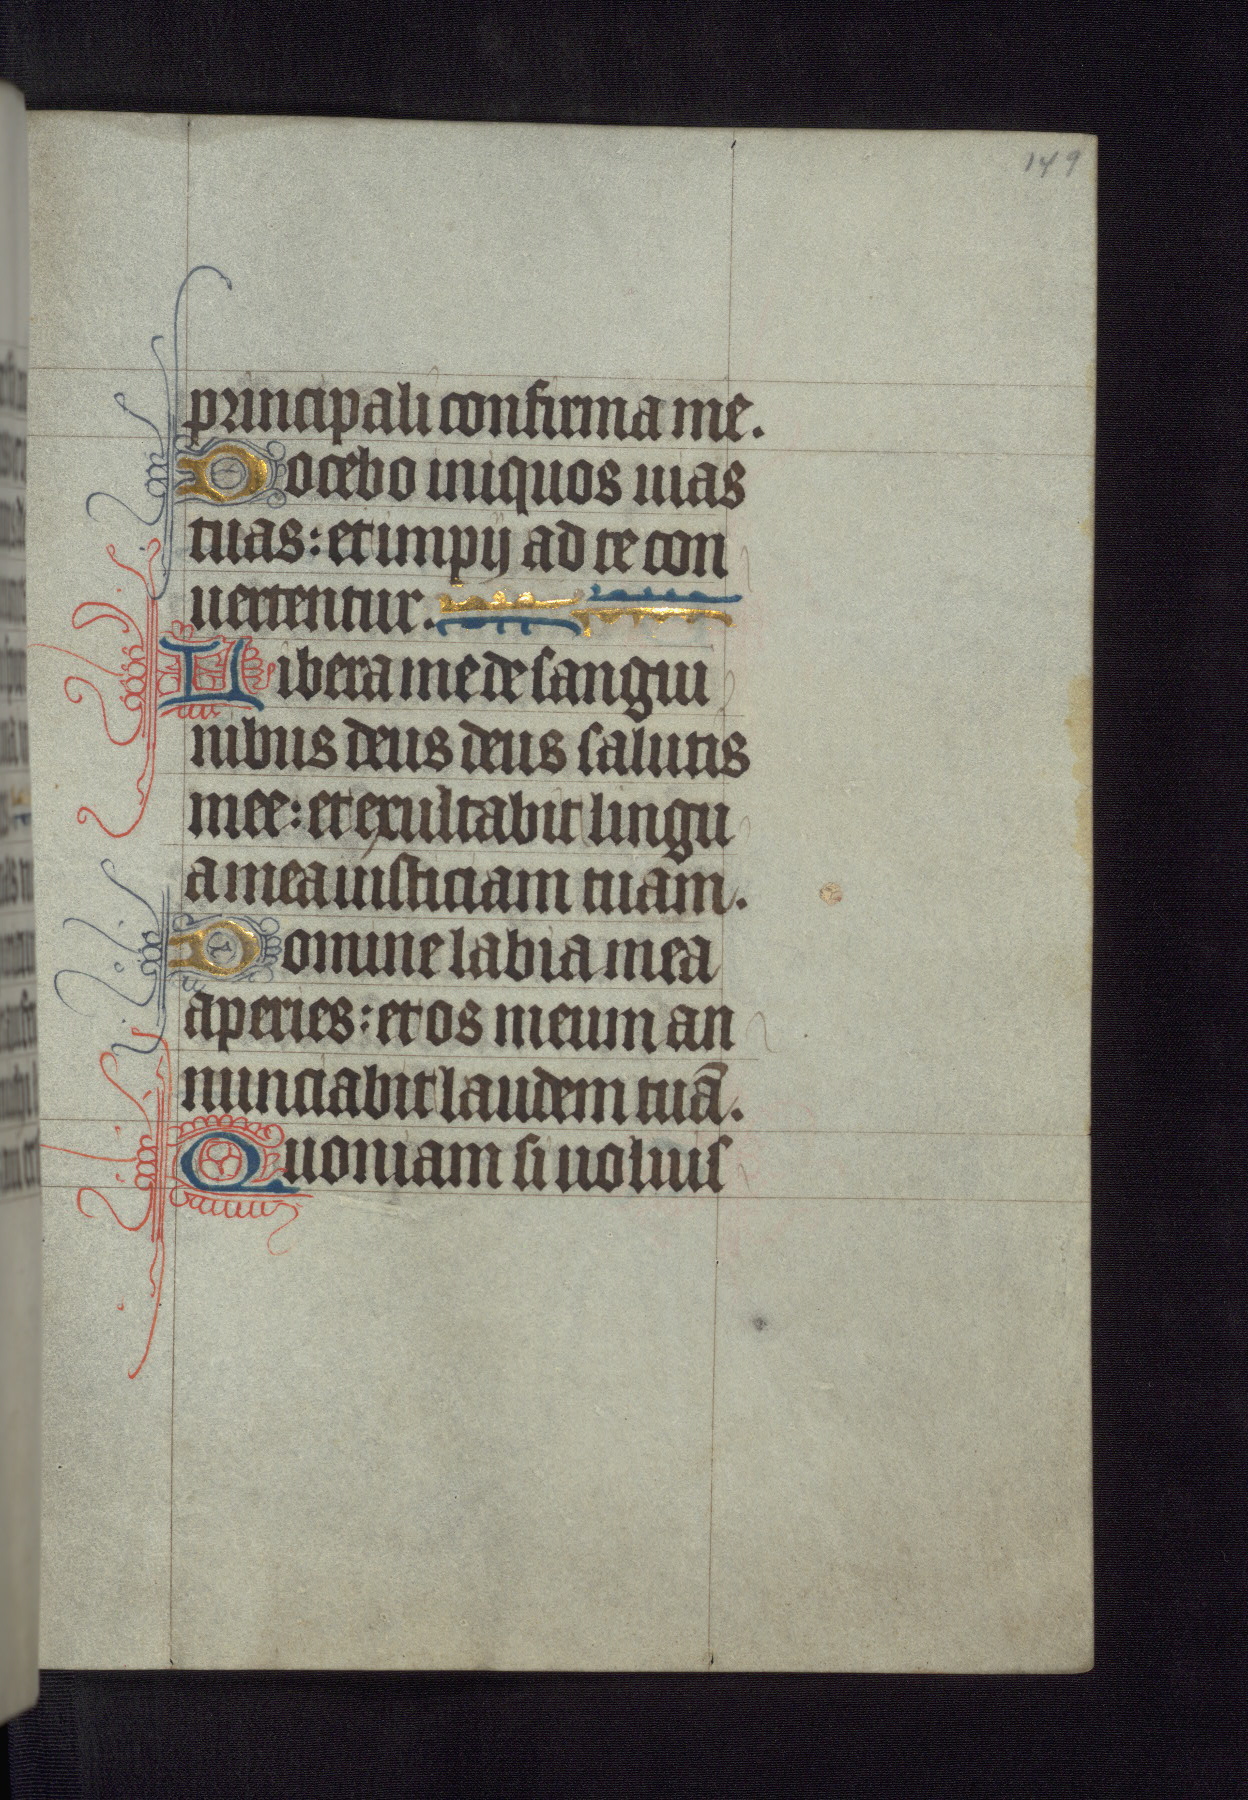 149
principali confirma me.
Docebo iniquos uias
tuas: et impij ad te con
uertentur.
Libera me de sangui
nibus deus deus salutis
mee: et exultabit lingu
a mea iusticiam tuam.
Domine labia mea
aperies: et os meum an
nunciabit laudem tuā.
Quoniam si uoluis